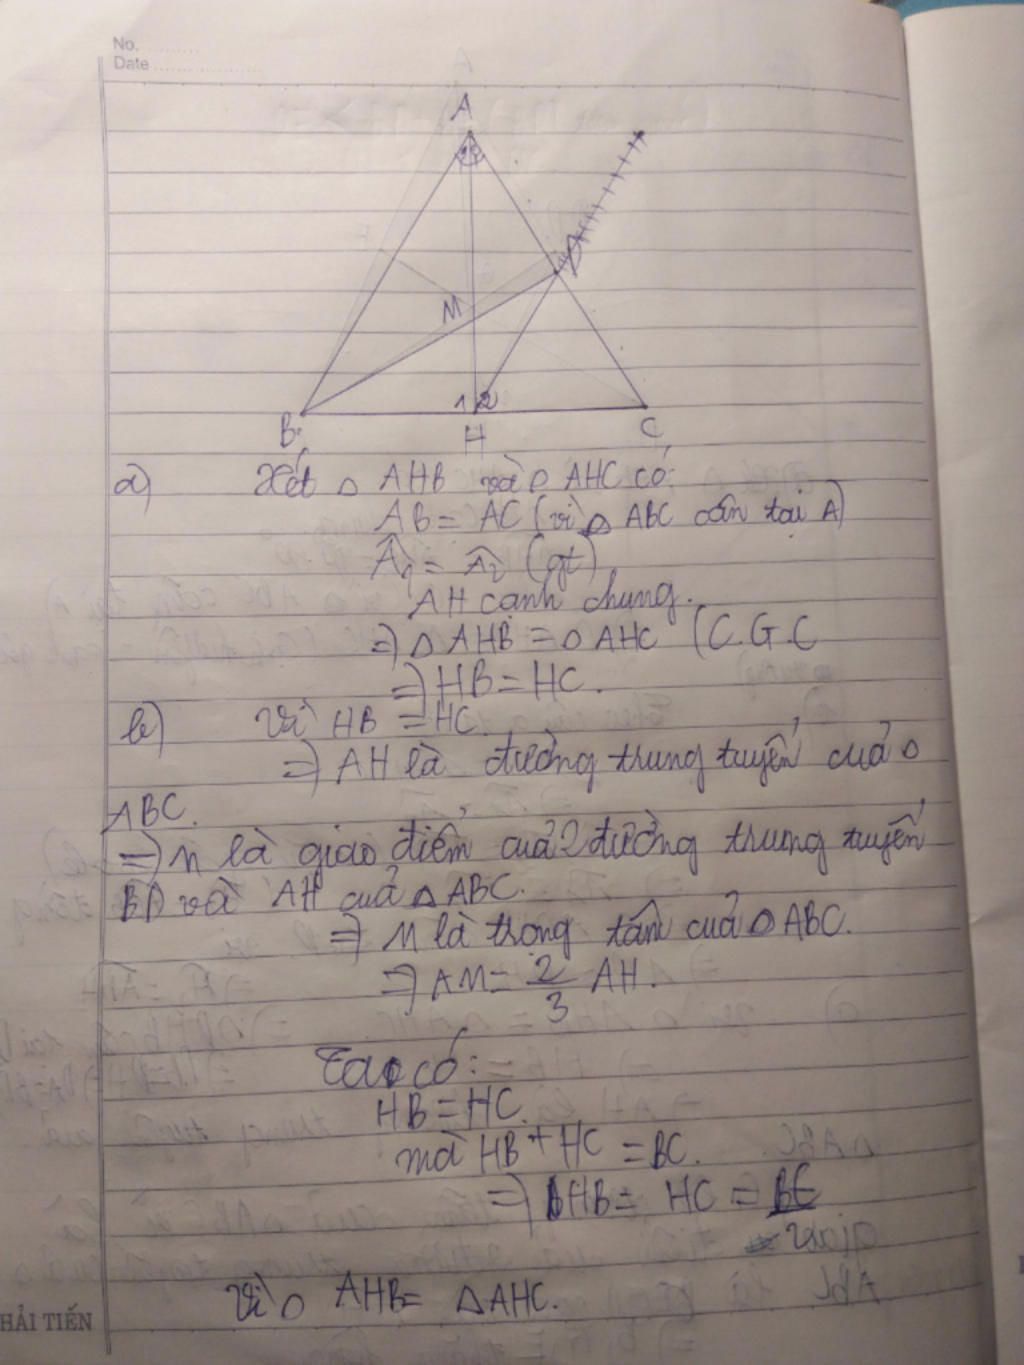 No.
Date
A
M
1 2
B
H
C
a) Xét △ AHB và △ AHC có:
AB = AC (vì △ ABC cân tại A)
Â1 = Â2 (gt)
AH cạnh chung.
=> △ AHB = △ AHC (C.G.C
=> HB = HC.
b) Vì HB = HC.
=> AH là đường trung tuyến của △
ABC.
=> M là giao điểm của 2 đường trung tuyến
BD và AH của △ ABC.
=> M là trọng tâm của △ ABC.
=> AM = 2/3 AH.
Ta có:
HB = HC.
mà HB + HC = BC.
=> HB = HC =
Vì △ AHB = △ AHC.
HẢI TIẾN